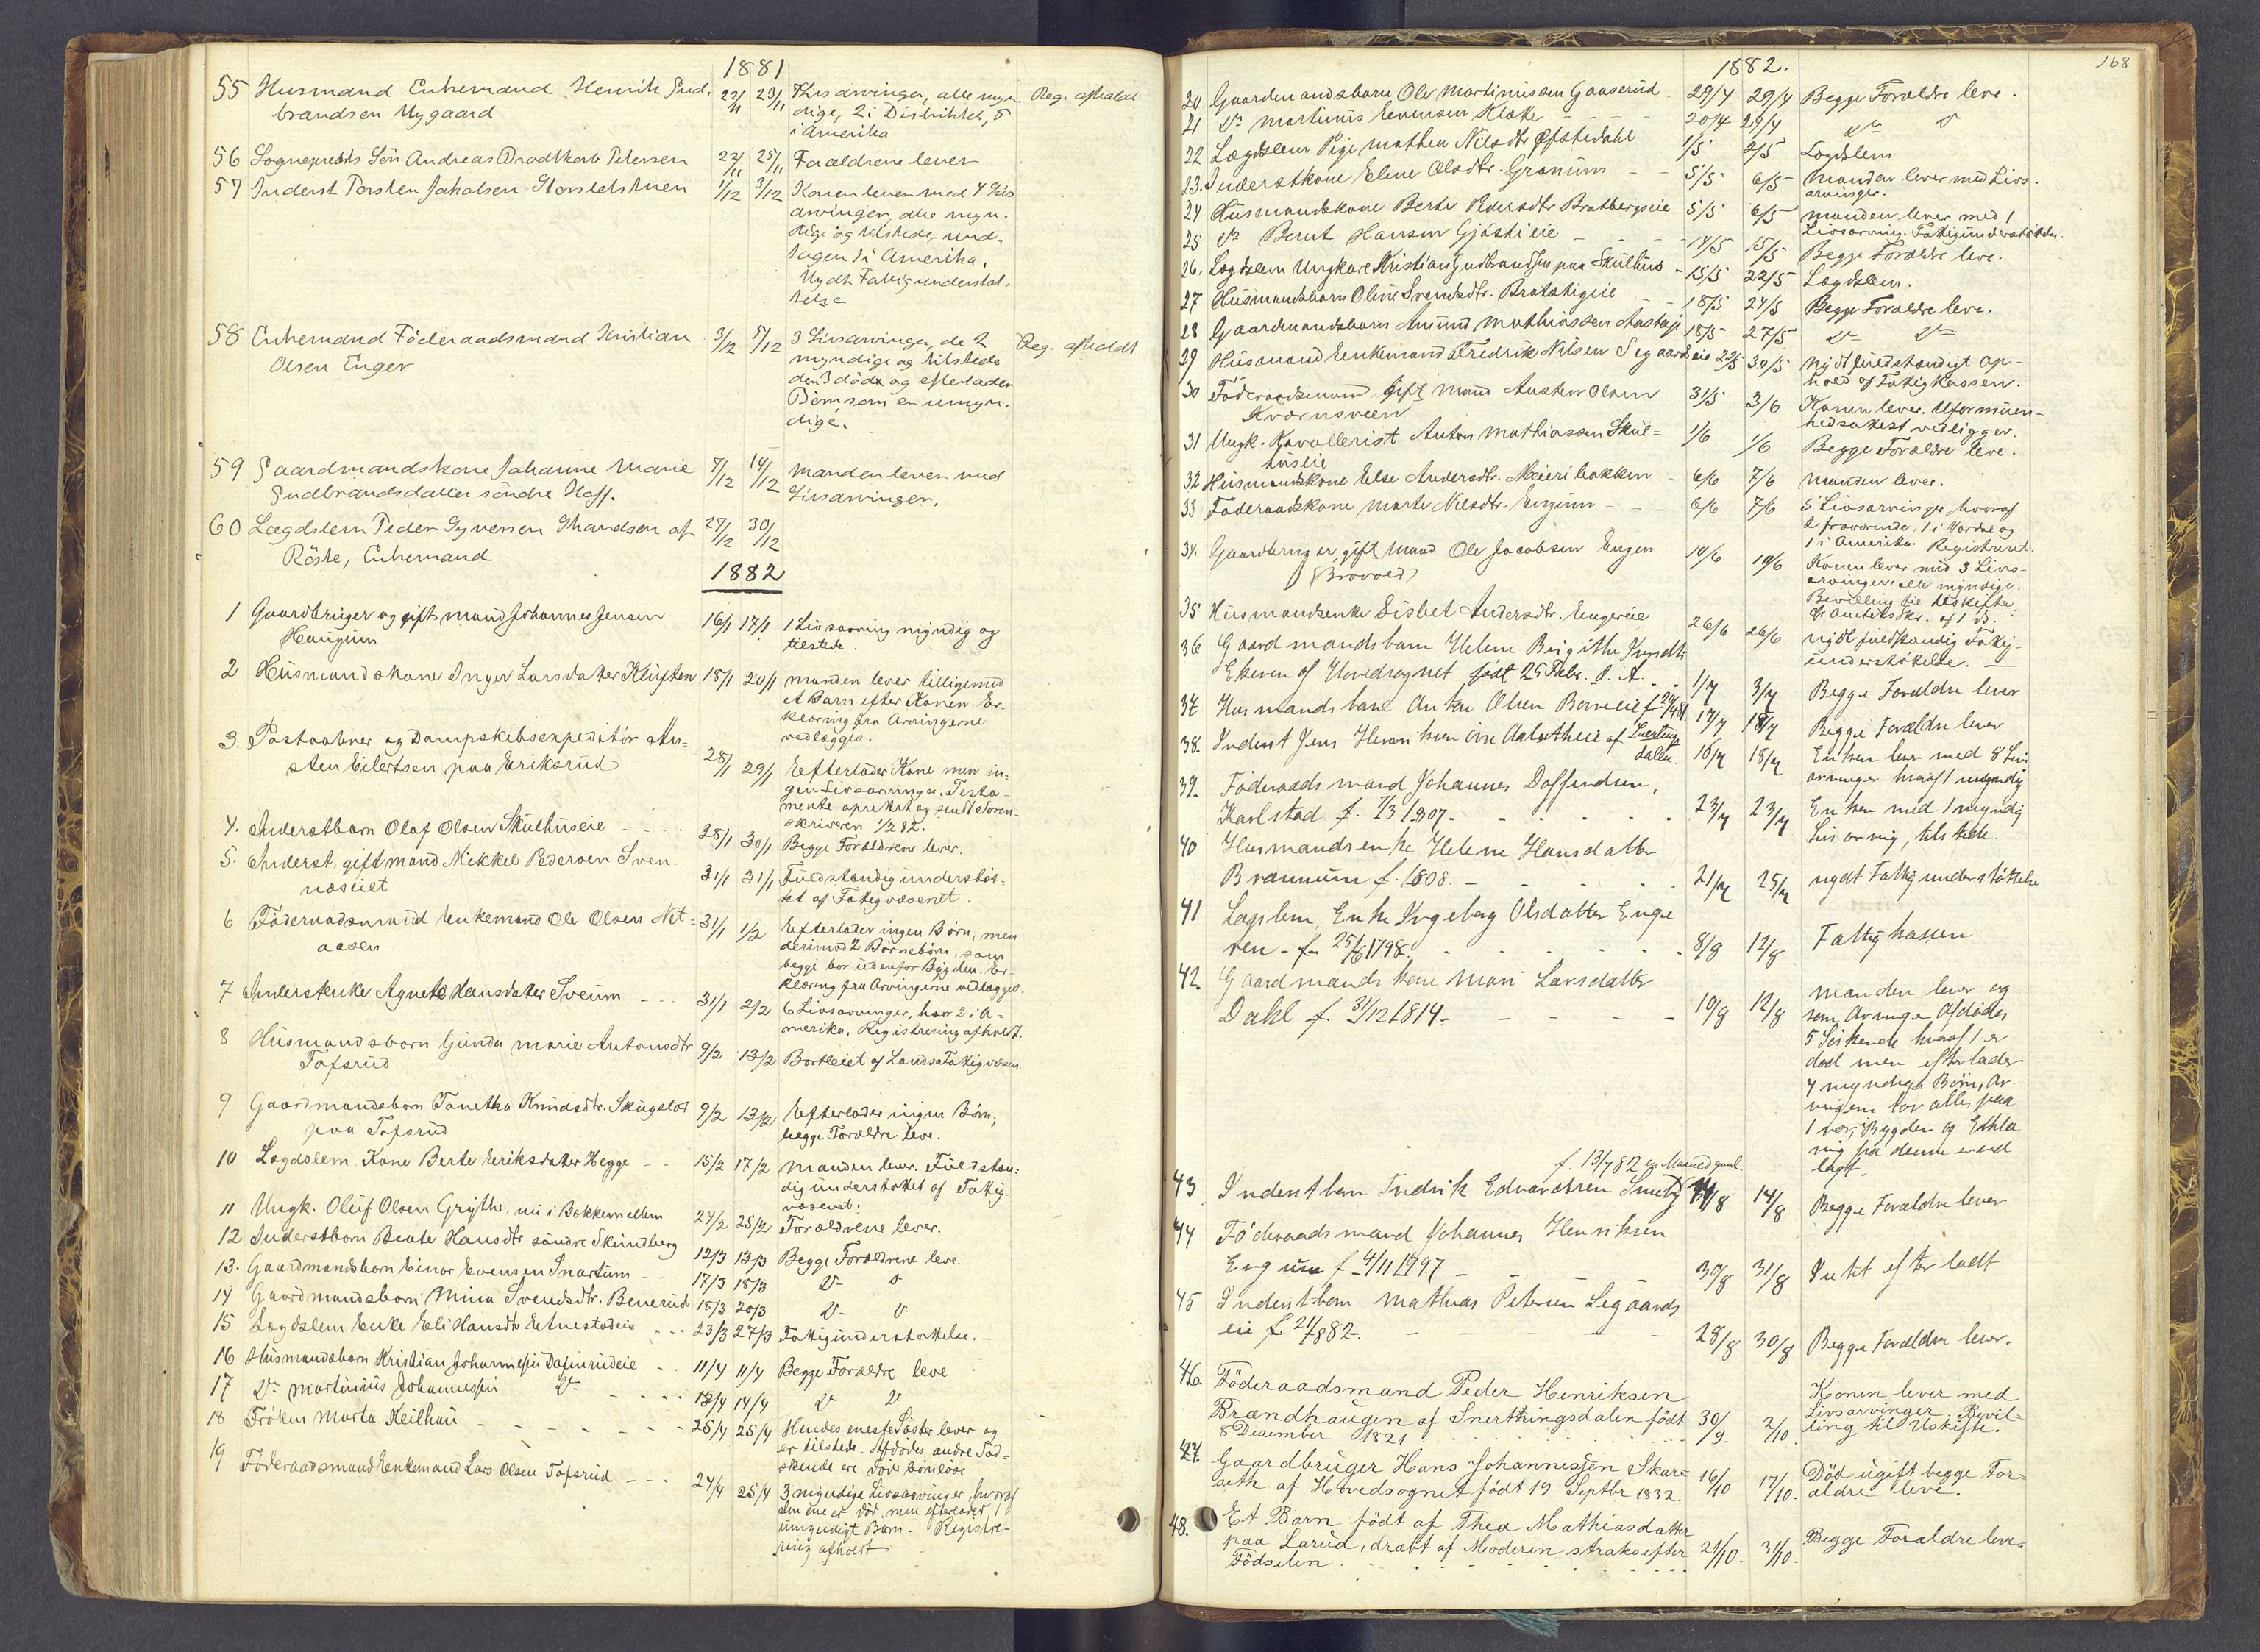 1881
55 Husmand Enkemand Henrik Gud. 22/11 23/11 7 Livsarvinger, alle myn Reg. afholdt
brandsen Nygaard dige, 2 i Distriktet, 5
i Amerika
56 Sogneprests Sön Andreas Bradtkorb Petersen 22/11 25/11 Forældrene lever
57 Inderst Torsten Jakobsen 1/12 3/12 Konen lever med 4 Livs
arvinger, alle myn-
dige og tilstede, und-
tagen 1 i Amerika.
Nydt Fattigunderstøt-
telse
58 Enkemand Föderaadsmand Kristian 3/12 5/12 3 Livsarvinger, de 2 Reg. afholdt
Olsen Enger myndige og tilstede
den 3 död og efterlader
Börn som er umyn-
dige.
59 Gaardmandskone Johanne Marie 7/12 14/12 Manden lever med
Gudbrandsdatter söndre Hoff. Livsarvinger.
60 Lægdslem Peder Syversen Strandsen af 27/12 30/12
Röste, Enkemand
1882
1 Gaardbruger og gift mand Johannes Jensen 16/1 17/1 1 Livsarving myndig og
Haugum tilstede.
2 Husmandskone Inger Larsdatter Kluften 18/1 20/1 manden lever tilligemed
et Barn efter Konen Er-
klæring fra Arvingerne
vedlægges.
3. Postaabner og Dampskibsexpeditör An- 28/1 29/1 Efterlader Kone men in-
sten Eilertsen paa Eriksrud gen Livsarvinger. Testa-
mente oprettet og sendt Soren-
skriveren 1/2 82.
4. Inderstbarn Olaf Olsen Skulhuseie 28/1 30/1 Begge Forældrene lever.
5. Inderst, gift mand Mikkel Pedersen Sven- 31/1 31/1 Fuldstændig understøt-
næsiiet tet af Fattigvæsenet.
6 Föderaadsmand Enkemand Ole Olsen Net- 31/1 1/2 Efterlader ingen Börn, men
aasen derimod 2 Börnebörn, som
begge bor udenfor Bygden. Er-
klæring fra Arvingerne vedlægges.
7 Inderstenke Agnete Hansdatter Sveum 31/1 2/2 6 Livsarvinger, hvor 2 i A-
merika. Registrering afholdt.
8 Husmandsbarn Gunda Marie Antonsdtr 9/2 13/2 Bortleiet af Lands Fattigvæsen
Tofsrud
9 Gaardmandsbarn Tanetha Knudsdtr. Skugstad 9/2 13/2 Efterlader ingen Börn,
paa Tofsrud begge Forældre leve.
10 Lægdslem, Kone Berte Eriksdatter Hegge 15/2 17/2 Manden lever. Fuldstæn-
dig understøttet af Fattig-
væsenet.
11 Ungk. Oluf Olsen Grythe, nu i Bakkemellem 24/2 25/2 Forældrene lever.
12 Inderstbarn Beate Hansdtr söndre Skundberg 12/3 13/3 Begge Forældrene leve.
13. Gaardmandsbarn Einar Evensen Snartum 17/3 18/3
14 Gaardmandsbarn Mina Svendsdtr. Benerud 18/3 20/3
15 Lægdslem Enke Eli Hansdtr Etnestadeie 23/3 27/3 Fattigunderstøttelse.
16 Husmandsbarn Kristian Johannessen Dafinrudeie 11/4 11/4 Begge Forældre leve
17 Do Martinius Johannessen Do 13/4 14/4
18 Fröken Marta Keilhau 25/4 25/4 Hendes eneste Söster lever og
er tilstede. Afdödes andre Söd-
skende ere döde börnlöse
19 Föderaadsmand Enkemand Lars Olsen Tofsrud 24/4 25/4 3 myndige Livsarvinger, hvoraf
den ene er död, men efterlader, 1
umyndigt Barn. Registre-
ring afholdt
168
1882.
20 Gaardmandsbarn Ole Martinissen Gaaserud 29/4 29/4 Begge Forældre leve.
21 Do Martinus Evensen Kloke 20/4 29/4
22 Lægdslem Pige Mathea Nilsdtr Ofstedahl 1/5 2/5 Lægdslem
23. Inderstkone Eline Olsdtr. Granum 5/5 6/5 Manden lever med Livs-
arvinger.
24 Husmandskone Berte Pedersdtr Bratbergseie 5/5 6/5 manden lever med 1
Livsarving. Fattigunderstøttelse.
25 Do Bernt Hansen Gjöstieie 14/5 15/5 Begge Forældre leve.
26. Lægdslem Ungkarl Kristian Gudbrandsen paa Skulhus 15/5 22/5 Lægdslem.
27 Husmandsbarn Oline Svendsdtr. Bratstigeie 18/5 24/5 Begge Forældre leve.
28 Gaardmandsbarn Amund Mathiassen 18/5 27/5
29 Husmand Enkemand Fredrik Nilsen Segaardseie 29/5 30/5 Nydt fuldstændigt op-
hold af Fattigkassen.
30 Föderaadsmand gift Mand Austen Olsen 31/5 3/6 Konen lever. Uformuen-
Kværnsveen hedsattest vedligger.
31 Ungk. Kavallerist Anton Mathiassen Skul- 1/6 1/6 Begge Forældre leve.
huseie
32 Husmandskone Else Andersdtr. Meieribakken 6/6 7/6 Manden lever.
33 Föderaadskone Marte Nilsdtr. Engum 6/6 7/6 5 Livsarvinger, hvoraf
2 fraværende, 1 i Vardal og
1 i Amerika. Registreret.
34. Gaardbruger, gift Mand Ole Jacobsen Engen 10/6 10/6 Konen lever med 3 Livs-
(Brovold) arvinger, alle myndige.
Bevilling til Uskifte.
35 Husmandsenke Lisbet Andersdtr. Engereie 26/6 26/6 nydt fuldstændig Fattig-
understøttelse.
36 Gaardmandsbarn Helene Birgitha
Ekeren af Hovedsognet født 25 Febr. d. A. 1/7 3/7 Begge Forældre lever
37 Husmandsbarn Anton Olsen 17/7 18/7 Begge Forældre lever
38. Inderst Jens Henriksen 16/7 18/7 Enken lever med 8 Livs
dalen. arvinger hvoraf 1 umyndig
39. Föderaadsmand Johannes Daffindsen,
Karlstad f. 7/3 1807. 23/7 23/7 Enken med 1 myndig
Livsarving, tilstede.
40 Husmandsenke Helene Hansdatter
Brænnum f. 1808. 21/7 25/7 nydt Fattigunderstöttelse
41 Lægslem, Enke Ingeborg Olsdatter Enge
ren - f. 25/6 1798. 8/8 12/8 Fattigkassen
42. Gaardmandskone Mari Larsdatter manden lever og
Dahl f. 31/12 1814. 10/8 12/8 som Arvinge Afdödes
5 Söskende hvoraf 1 er
död men efterlader
4 myndige Börn, Ar-
vingerne bor alle paa
1 nær i Bygden og Erklæ
ring fra denne er ved
lagt.
f. 13/7 82 en Maaned gaml.
43 Inderstbarn Fredrik Edvardsen Smeby 11/8 14/8 Begge Forældre lever
44 Föderaadsmand Johannes Henriksen
Engum f. 4/11 1797 30/8 31/8 Intet efterladt
45 Inderstbarn Mathias Petersen Segaards
eie f. 21/7 882. 28/8 30/8 Begge Forældre lever.
46. Föderaadsmand Peder Henriksen Konen lever med
Brændhaugen af Snertingsdalen født 30/9. 2/10. Livsarvinger. Bevil-
8 Desember 1821 ling til Uskifte.
47. Gaardbruger Hans Johannessen Skar- 16/10 17/10. Död ugift begge For-
seth af Hovedsognet född 19 Septbr 1832. ældre leve.
48. Et Barn födt af Thea Mathiasdatter
paa Larud, dræbt af Moderen straks efter 21/10. 31/10. Begge Forældre leve.
Födselen.